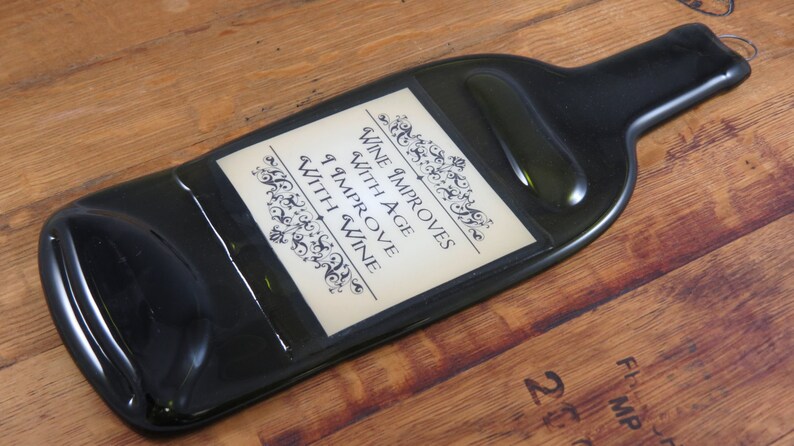 Wine Improves
With Age
I Improve
With Wine